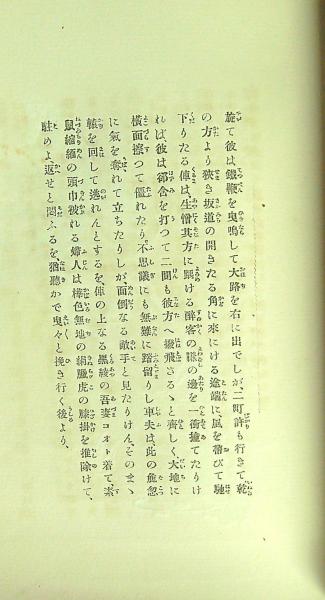 旋て彼は鐵鞭を曳鳴して大路を右に出でしが、二町許も行きて乾
の方より狹き坂道の開きたる角に來にける途端に、風を帶びて馳
下りたる俥は、生憎其方に踽ける醉客の膁の邊を一衝撞てたりけ
れば彼は郤含を打つて二間も彼方へ撥飛さるゝと齊しく、大地に
橫面擦つて僵れたり。不思議にも無難に踏留りし車夫は、此の麁忽
に氣を奪れて立ちたりしが面倒なる敵手と見たりけん、そのまゝ
轅を回して逃れんとするを、俥の上なる黑綾の吾妻コオト着て、素
鼠縮緬の頭巾被れる婦人は樺色無地の絹臘虎の膝掛を推除けて、
駐めよ返せと悶ふるを、猶聽かで曳々と挽き行く後より、